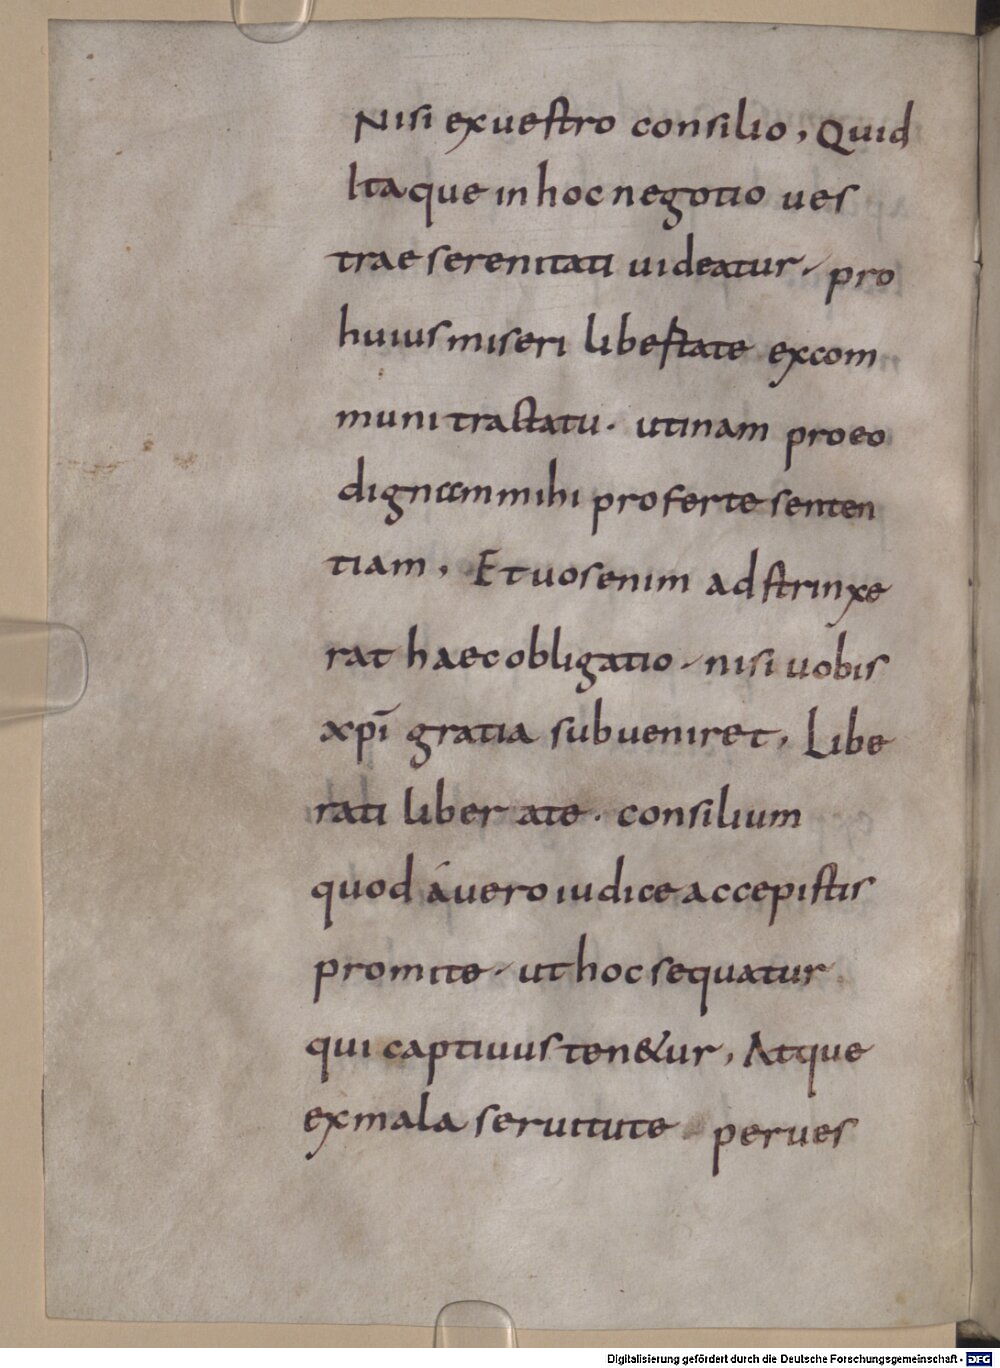 Nisi ex uestro consilio, Quid
Itaque in hoc negotio ues
trae serenitati uideatur, pro
huius miseri libestate excom
muni tractatu. utinam pro eo
dignam mihi proferte senten
tiam, Et uos enim adstrinxe
rat haec obligatio, nisi uobis
xpī gratia subueniret, Libe
rati liberate. consilium
quod á uero iudice accepistis
promite, ut hoc sequatur
qui captiuus ten&ur, Atque
ex mala seruitute per ues
Digitalisierung gefördert durch die Deutsche Forschungsgemeinschaft - DFG